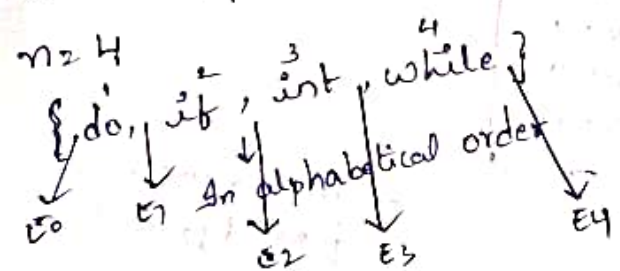 n = 4
1 2 3 4
{ do, if, int, while }
In alphabetical order
E0 E1 E2 E3 E4